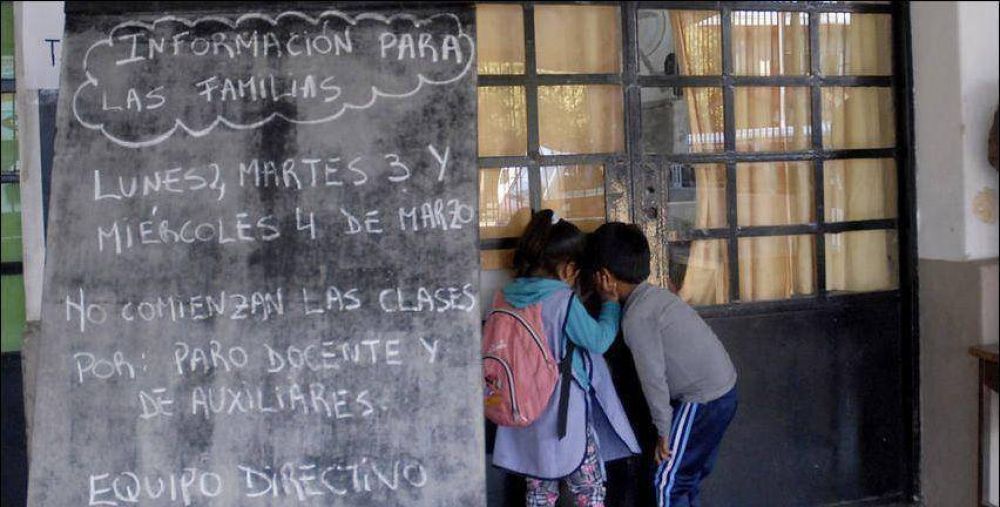 T
INFORMACIÓN PARA
LAS FAMILIAS
LUNES 2, MARTES 3 Y
MIÉRCOLES 4 DE MARZO
NO COMIENZAN LAS CLASES
POR: PARO DOCENTE Y
DE AUXILIARES.
EQUIPO DIRECTIVO